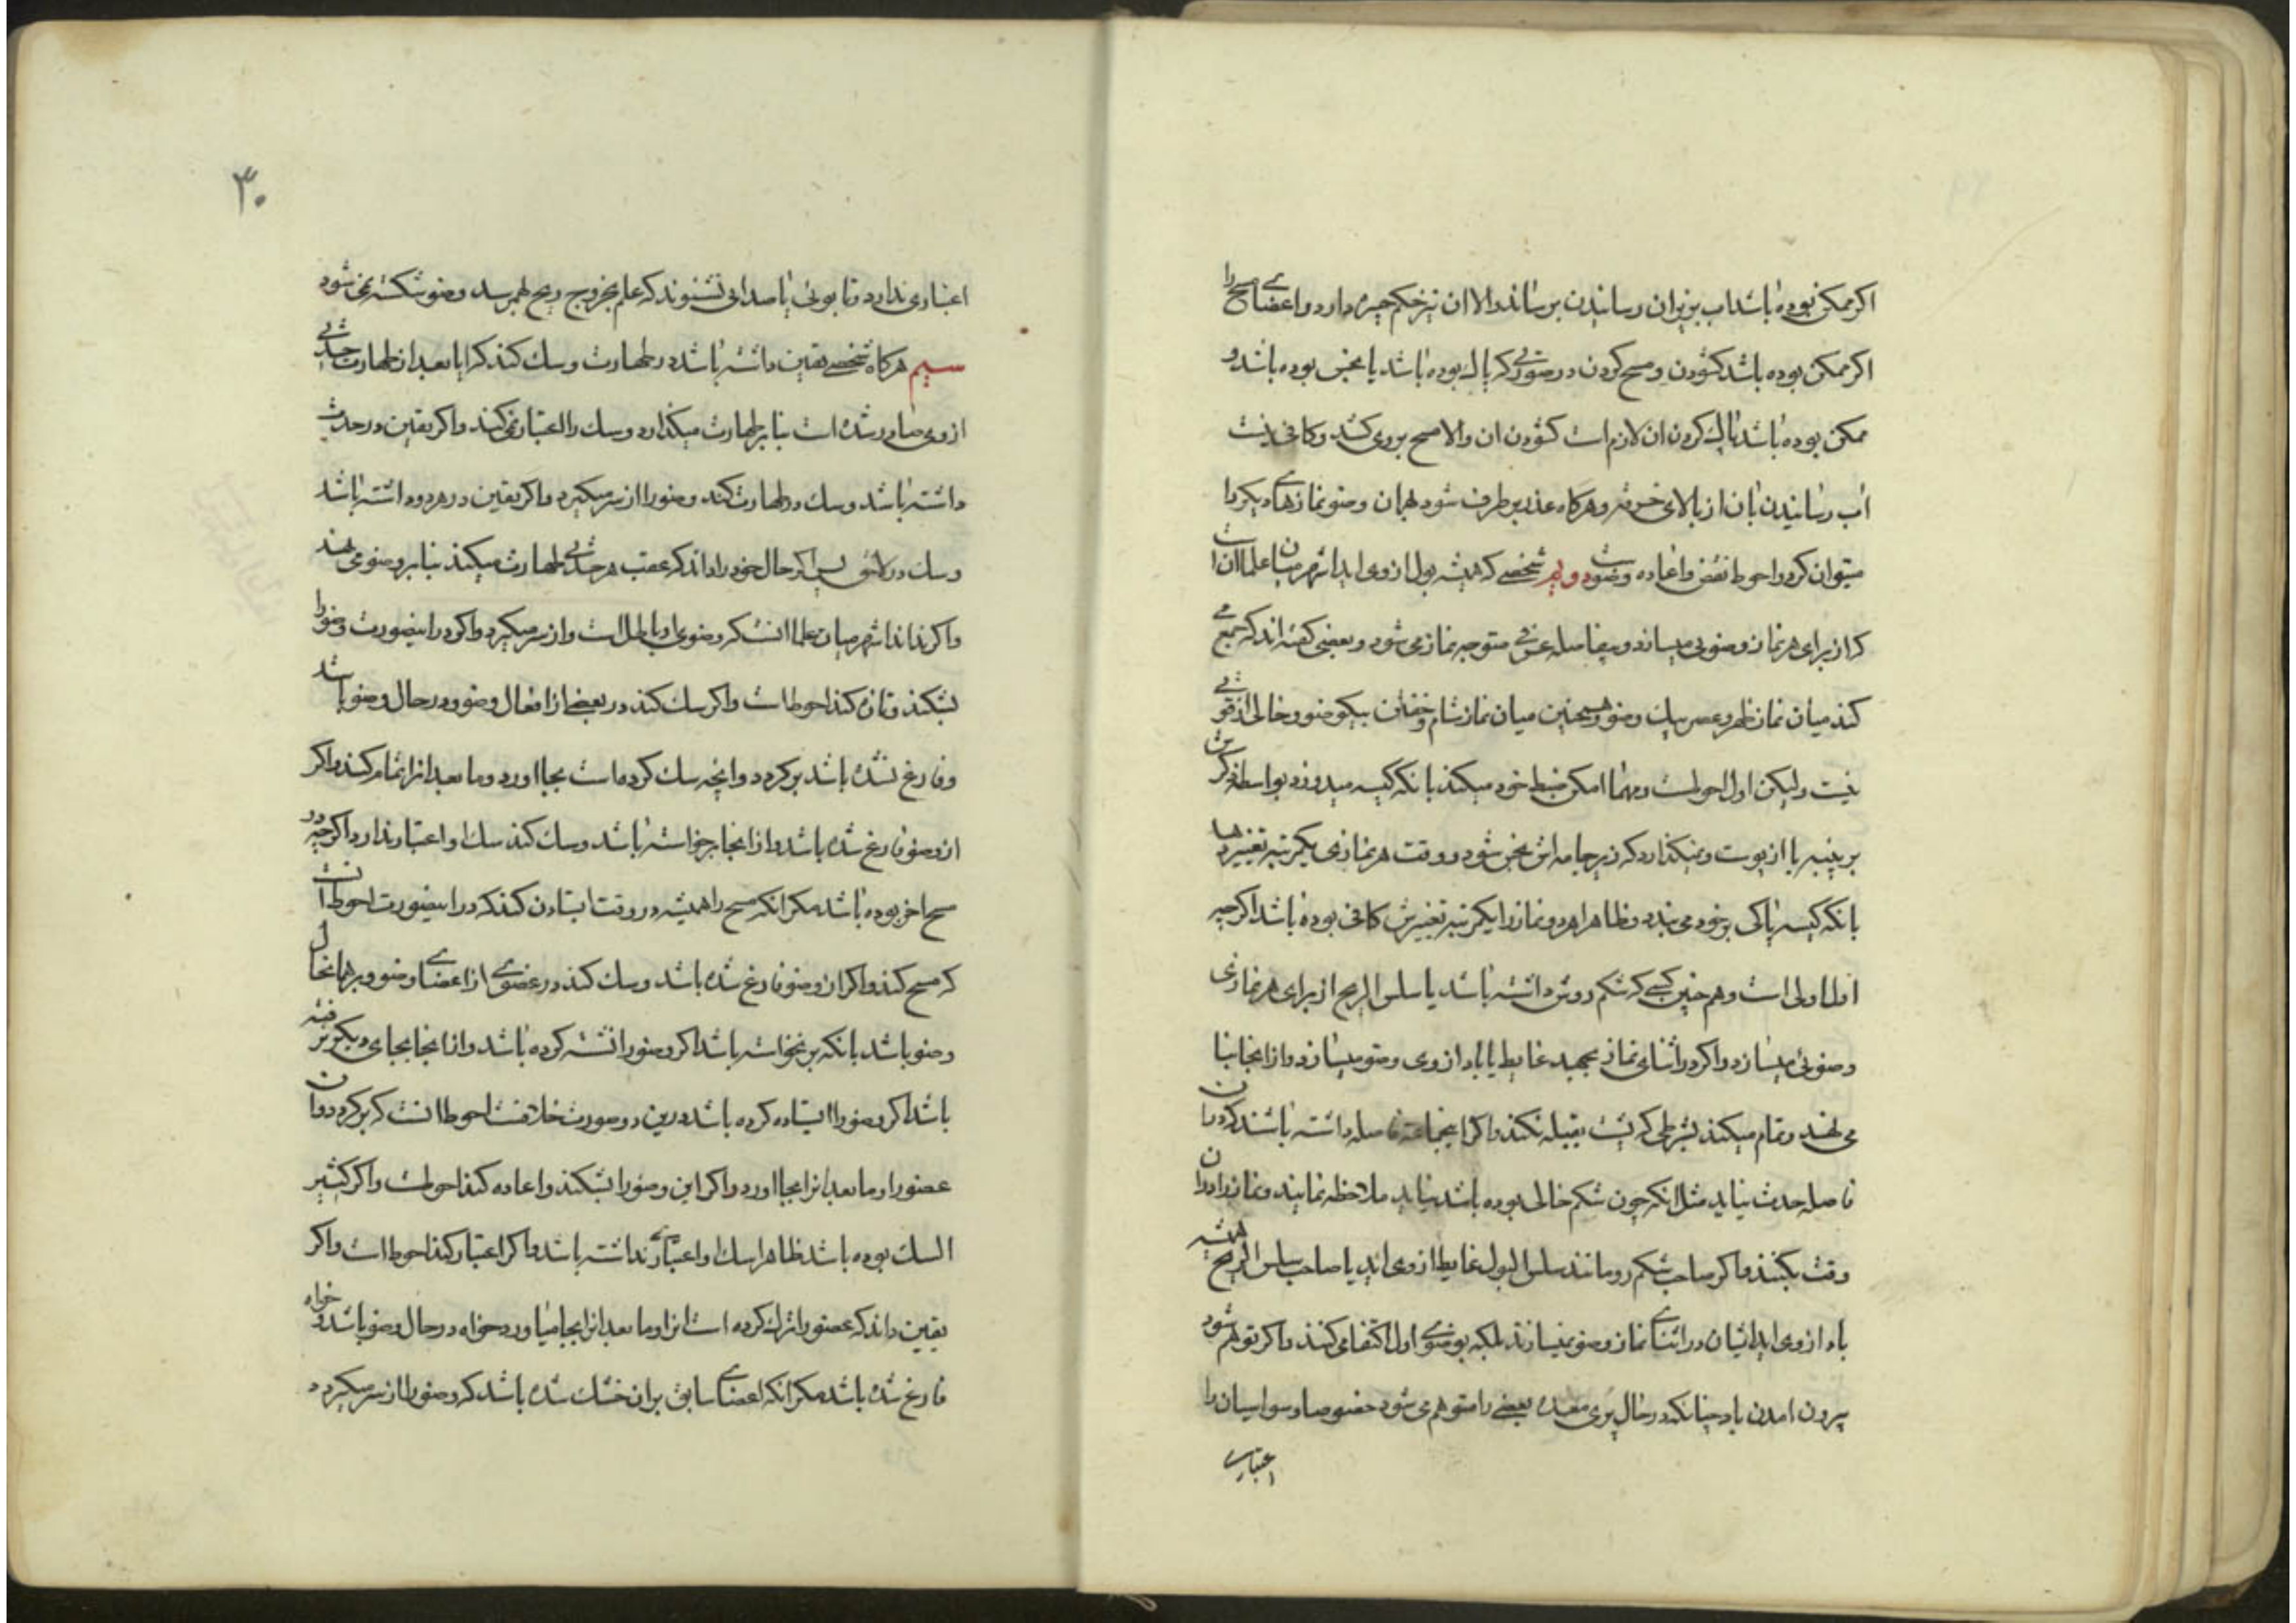 اکر ممکن بوده باشد اب بزیران رسانیدن برساند والا ان نیز حکم جبیره دارد و اعضای مسح را
اکر ممکن بوده باشد کشودن و مسح کردن در صورتی که پاک بوده باشد یا نجس بوده باشد و
ممکن بوده باشد پاک کردن ان لازم است کشودن ان والا مسح بروی کشد و کافی نیست
اب رسانیدن بان از بالای خرقه و هرکاه عذر برطرف شود بهمان وضو نمازهای دیکر را
میتوان کرد و احوط نقض و اعاده وضوست دویم شخصی که همیشه بول از وی اید اشهر میان علما انست
که از برای هر نماز وضویی میسازد و بیفاصله عرفی متوجه نماز می شود و بعضی کفته اند که جمع می
کند میان نماز ظهر و عصر بیک وضو و همچنین میان نماز شام و خفتن بیکوضو و خالی از قوتی
نیست ولیکن اول احوطست و مهما امکن ضبط خود میکند بانکه کیسه میدوزد بواسطه ذکرش
بر پنبه یا از پوست و نمیکذارد که زیرجامه اش نجس شود و وقت هر نمازی یکمرتبه تغییر دهد
بانکه کیسه پاکی بر خود می بندد و ظاهرا هر دو نماز را یکمرتبه تغییرش کافی بوده باشد اکرچه
اول اولی است و هم چنین کسی که شکم روش داشته باشد یا سلس الریح از برای هر نمازی
وضوئی میسازد و اکر در اثنای نماز بجهد غایط یا باد از وی وضو میسازد و از انجا بنا
می نهد و تمام میکند بشرطی که پشت بقبله نکند و اکر اینجماعة فاصله داشته باشند که در ان
فاصله حدث نیاید مثل انکه چون شکم خالی بوده باشد نیاید ملاحظه نمایند و نماز را در ان
وقت بکنند و اکر صاحب شکم رو مانند سلس البول غایط از وی اید یا صاحب سلس الریح همیشه
باد از وی اید ایشان در اثنای نماز وضو نمیسازند بلکه بوضوی اول اکتفا می کنند و اکر توهم شود
بیرون امدن باد چنانکه در حال پری معده بعضی را متوهم می شود خصوصا وسواسیان را
اعتباری
۳۰
اعتباری ندارد تا بوئی یا صدائی نشنوند که علم بخروج ریح بهمرسد وضو شکسته نمی شود
سیم هرکاه شخصی یقین داشته باشد در طهارت و شک کند که ایا بعد از طهارت حدثی
از وی صادر شده است بنا بر طهارت میکذارد و شک را اعتبار نمی کند و اکر یقین در حدث
داشته باشد و شک در طهارت کند وضو را از سر میکیرد و اکر یقین در هر دو داشته باشد
و شک در لاحق پس اکر حال خود را داند که عقب هر حدثی طهارت میکند بنا بر وضو می نهد
و اکر نداند اشهر میان علما انستکه وضوی او باطل است و از سر میکیرد و اکر در اینصورت وضو را
بشکند و تازه کند احوط است و اکر شک کند در بعضی از افعال وضو و در حال وضو باشد
و فارغ نشده باشد برکردد و انچه شک کرده است بجا اورد و ما بعد انرا تمام کند و اکر
از وضو فارغ شده باشد و از انجا برخواسته باشد و شک کند شک او اعتبار ندارد اکرچه در
مسح اخر بوده باشد مکر انکه مسح را همیشه در وقت ایستادن کند که در اینصورت احوط انست
که مسح کند و اکر از وضو فارغ شده باشد و شک کند در عضوی از اعضای وضو و بر همانحال
وضو باشد بانکه برنخواسته باشد اکر وضو را نشسته کرده باشد و از انجا بجای دیکر نرفته
باشد اکر وضو را ایستاده کرده باشد درین دو صورت خلافست احوط انست که برکردد و ان
عضو را و ما بعد انرا بجا اورد و اکر این وضو را بشکند و اعاده کند احوطست و اکر کثیر
الشک بوده باشد ظاهرا شک او اعتباری نداشته باشد و اکر اعتبار کند احوط است و اکر
یقین داند که عضو را ترک کرده است انرا و ما بعد انرا بجا میاورد خواه در حال وضو باشد و خواه
فارغ شده باشد مکر انکه اعضای سابق بران خشک شده باشد که وضو را از سر میکیرد